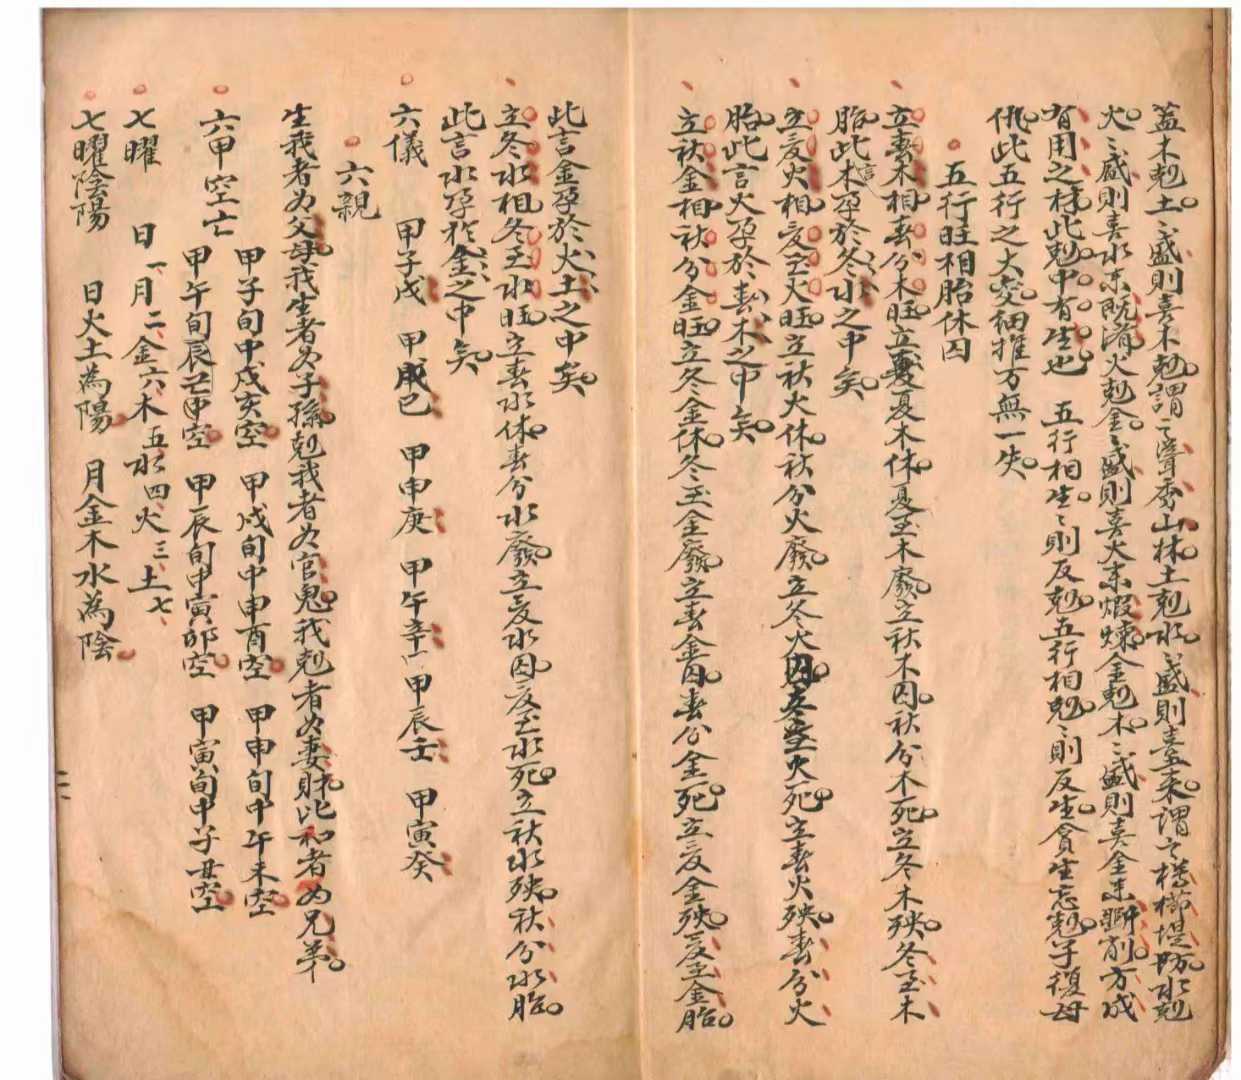 蓋木剋土〻盛則喜木剋謂之聳秀山林土剋水〻盛則喜土來謂之櫛堤防水剋
火〻盛則喜水來既濟火剋金〻盛則喜火來煆煉金剋木〻盛則喜金來斵削方成
有用之材此剋中有生也 五行相生〻則反剋五行相剋〻則反生貪生忘剋子復母
仇此五行之大変細推万無一失
五行旺相胎休囚
立春木相春分木旺立夏木休夏至木廢立秋木囚秋分木死立冬木殃冬至木
胎此言木孕於冬水之中矣
立夏火相夏至火旺立秋火休秋分火廢立冬火囚冬至火死立春火殃春分火
胎此言火孕於春木之中矣
立秋金相秋分金旺立冬金休冬至金廢立春金囚春分金死立夏金殃夏至金胎
此言金孕於火土之中矣
立冬水相冬至水旺立春水休春分水廢立夏水囚夏至水死立秋水殃秋分水胎
此言水孕於金之中矣
六儀 甲子戊 甲戌己 甲申庚 甲午辛 甲辰壬 甲寅癸
六親
生我者为父母我生者为子孫剋我者为官鬼我剋者为妻財比和者为兄弟
六甲空亡
甲子旬中戌亥空 甲戌旬中申酉空 甲申旬中午未空
甲午旬辰巳中空 甲辰旬中寅卯空 甲寅旬中子丑空
七曜 日一、月二、金六、木五水四、火三、土七、
七曜陰陽 日火土為陽 月金木水為陰